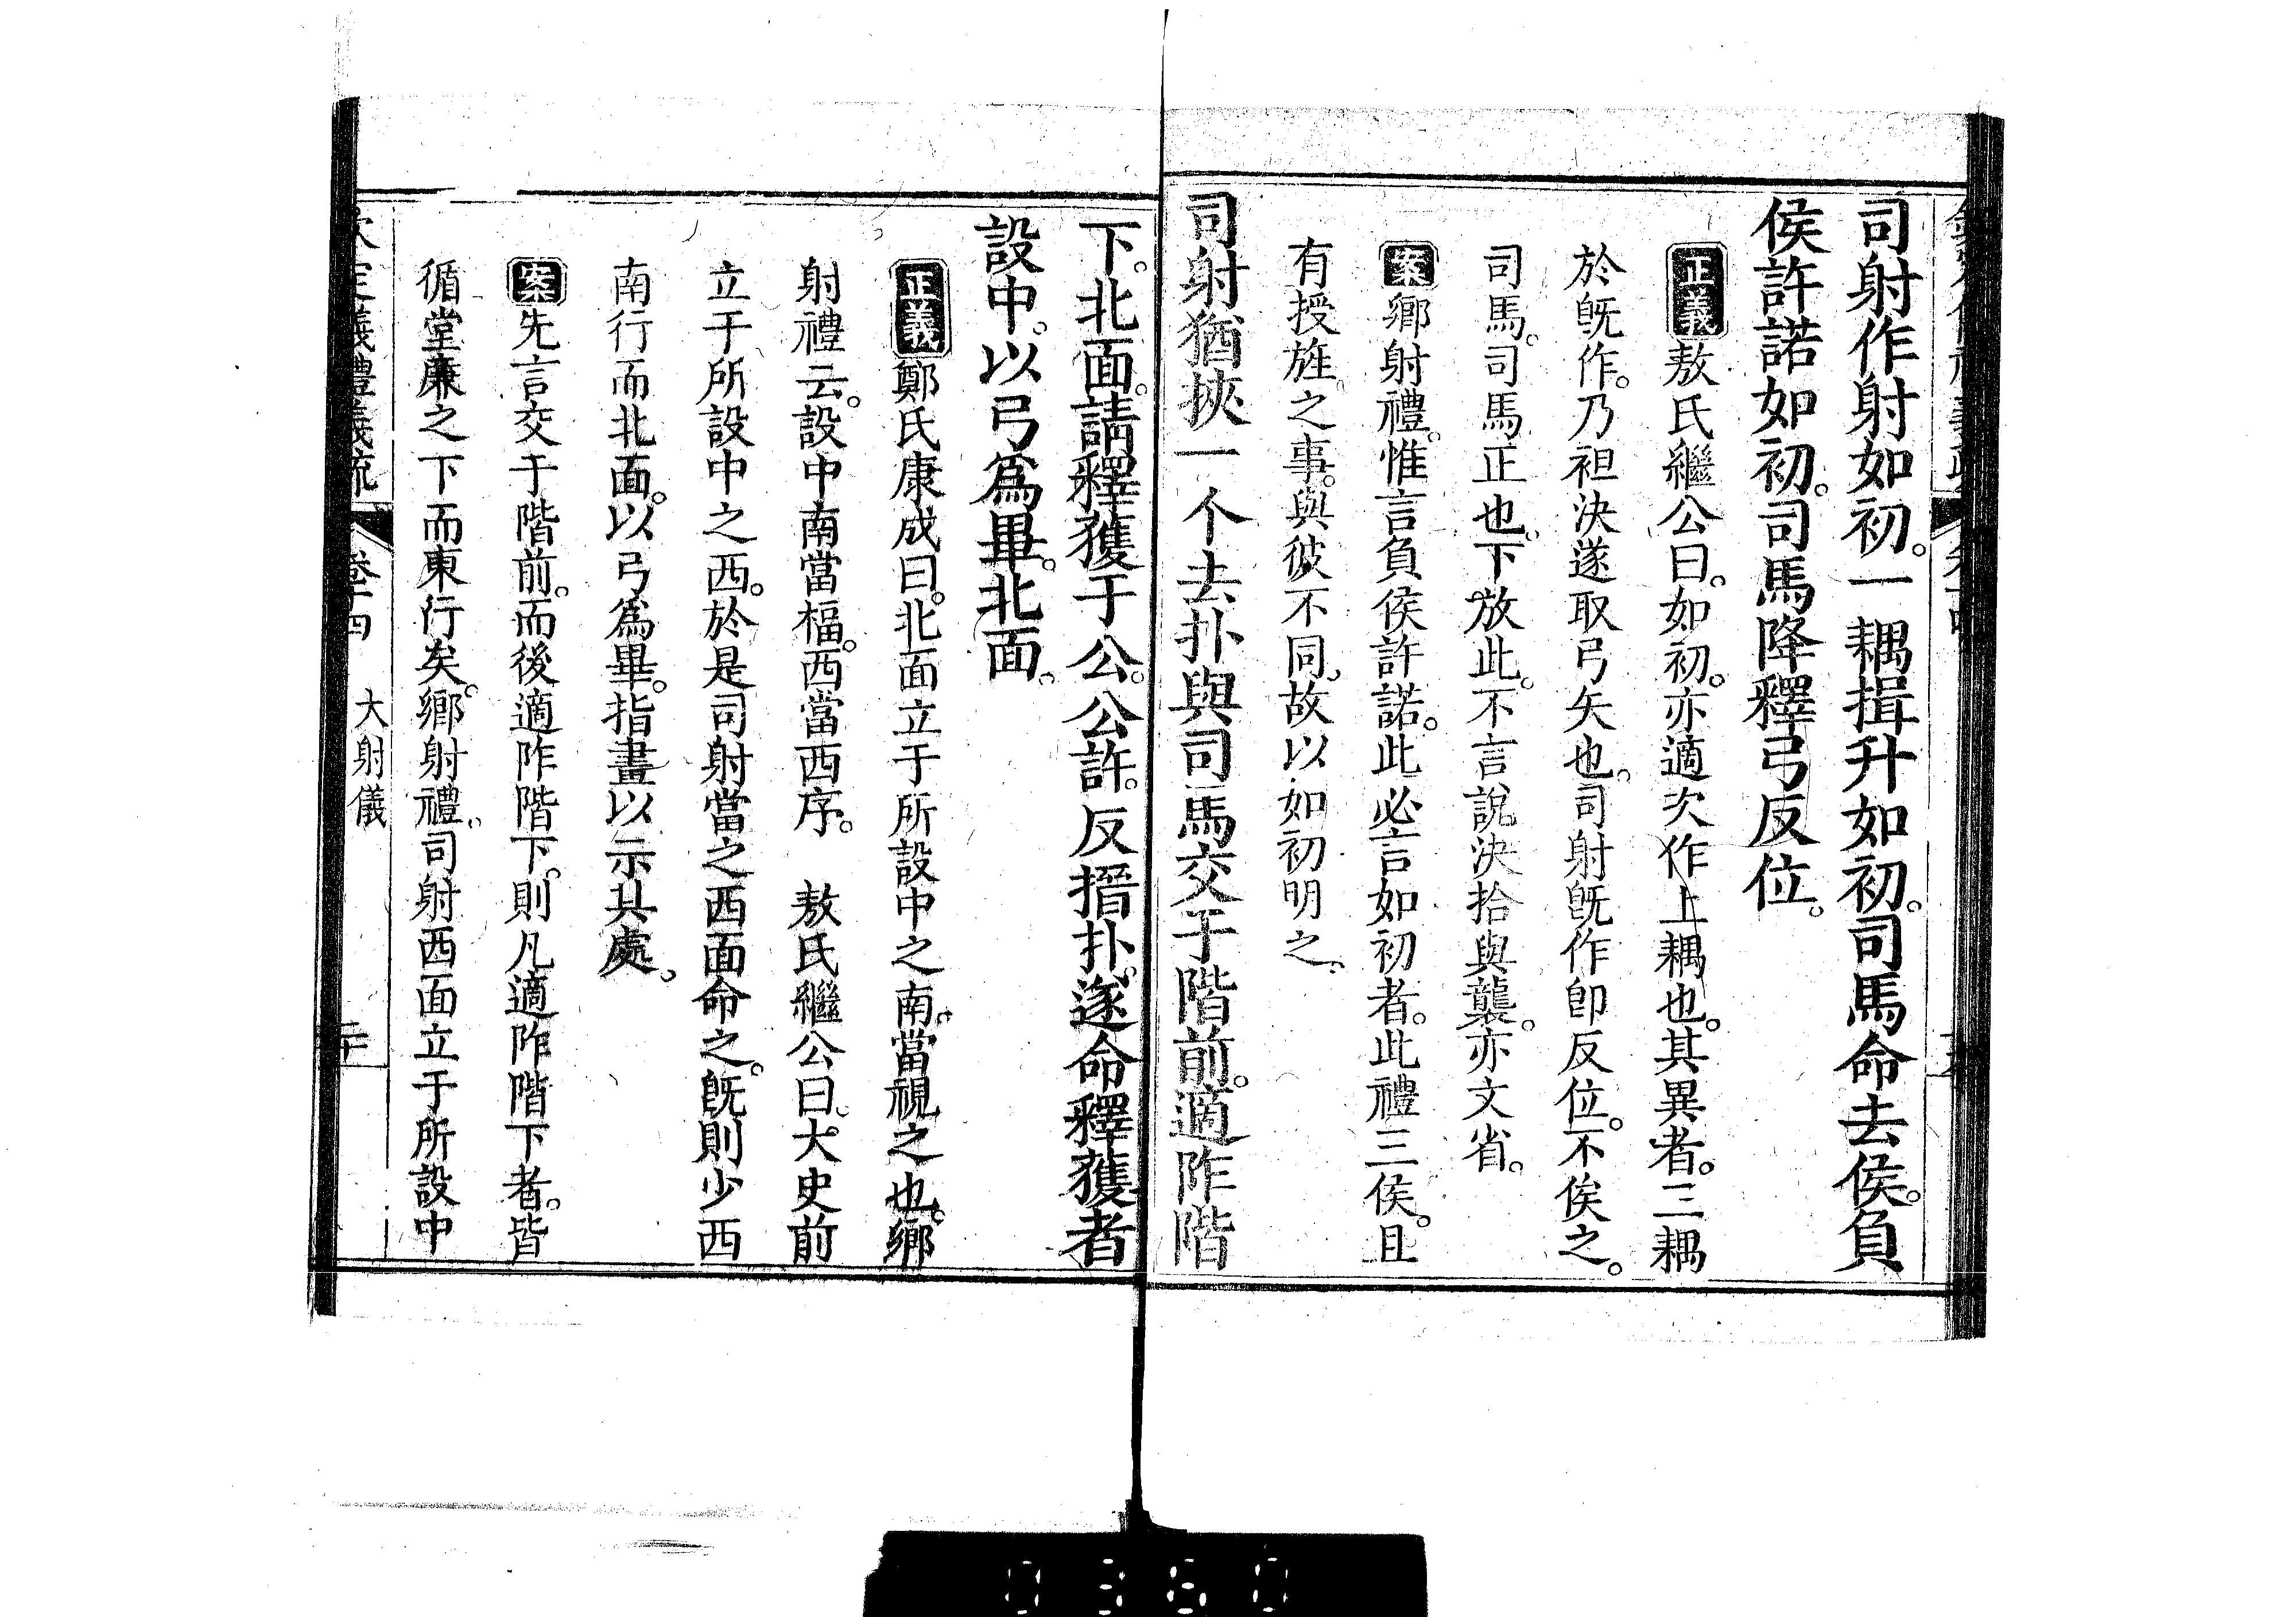 司射作射如初。一耦揖升如初。司馬命去侯。負
侯許諾如初。司馬降釋弓反位。
正義敖氏繼公曰。如初。亦適次作上耦也。其異者。三耦
於旣作。乃袒決遂取弓矢也。司射旣作卽反位。不俟之。
司馬。司馬正也。下放此。不言說決拾與襲。亦文省。
案鄉射禮。惟言負侯許諾。此必言如初者。此禮三侯。且
有授旌之事。與彼不同。故以如初明之。
司射猶挾一个去扑與司馬交于階前。適阼階
下。北面。請釋獲于公。公許。反搢扑。遂命釋獲者
設中。以弓爲畢。北面。
正義鄭氏康成曰。北面立于所設中之南。當視之也。鄉
射禮云。設中南當楅。西當西序。 敖氏繼公曰。大史前
立于所設中之西。於是司射當之西面命之。旣則少西
南行而北面。以弓爲畢。指畫以示其處。
案先言交于階前。而後適阼階下。則凡適阼階下者。皆
循堂廉之下而東行矣。鄉射禮。司射西面立于所設中
欽定儀禮義疏 卷十四 大射儀 二十
0360